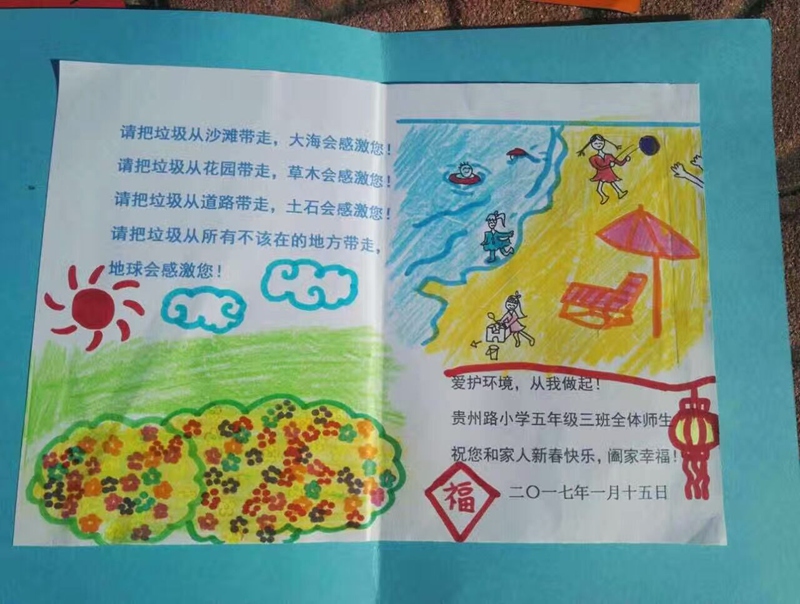 请把垃圾从沙滩带走，大海会感激您！
请把垃圾从花园带走，草木会感激您！
请把垃圾从道路带走，土石会感激您！
请把垃圾从所有不该在的地方带走，
地球会感激您！
爱护环境，从我做起！
贵州路小学五年级三班全体师生
祝您和家人新春快乐，阖家幸福！
福
二〇一七年一月十五日